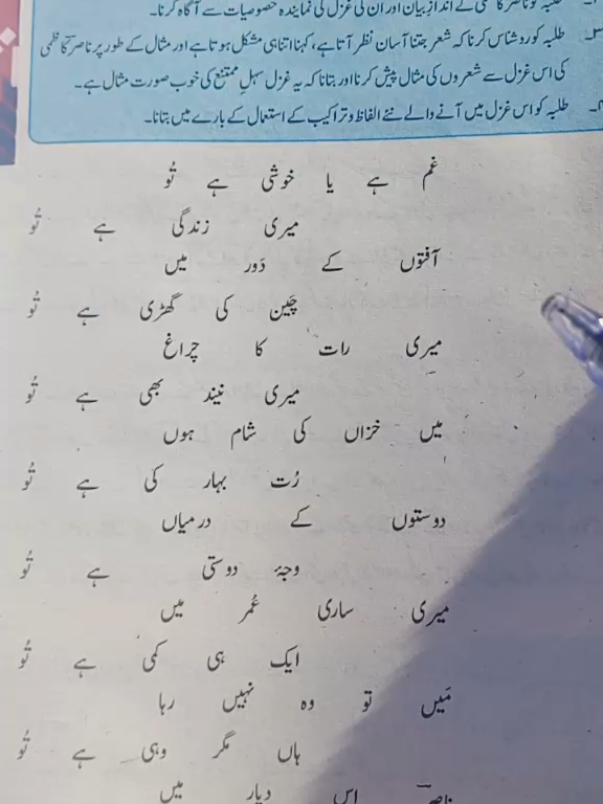 طلبہ کو ناصر کاظمی کے اندازِ بیان اور ان کی غزل کی نمایندہ خصوصیات سے آگاہ کرنا۔
۳۔ طلبہ کو روشناس کرنا کہ شعر جتنا آسان نظر آتا ہے، کہنا اتنا ہی مشکل ہوتا ہے اور مثال کے طور پر ناصر کاظمی
کی اس غزل سے شعروں کی مثال پیش کرنا اور بتانا کہ یہ غزل سہلِ ممتنع کی خوب صورت مثال ہے۔
۴۔ طلبہ کو اس غزل میں آنے والے نئے الفاظ و تراکیب کے استعمال کے بارے میں بتانا۔
غم ہے یا خوشی ہے تُو
میری زندگی ہے تُو
آفتوں کے دَور میں
چَین کی گھڑی ہے تُو
میری رات کا چراغ
میری نیند بھی ہے تُو
میں خزاں کی شام ہوں
رُت بہار کی ہے تُو
دوستوں کے درمیاں
وجۂ دوستی ہے تُو
میری ساری عُمر میں
ایک ہی کمی ہے تُو
مَیں تو وہ نہیں رہا
ہاں مگر وہی ہے تُو
ناصرؔ اس دیار میں